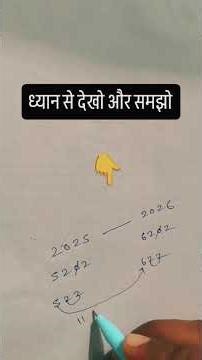 ध्यान से देखो और समझो
2025 — 2026
5202 6202
677
11